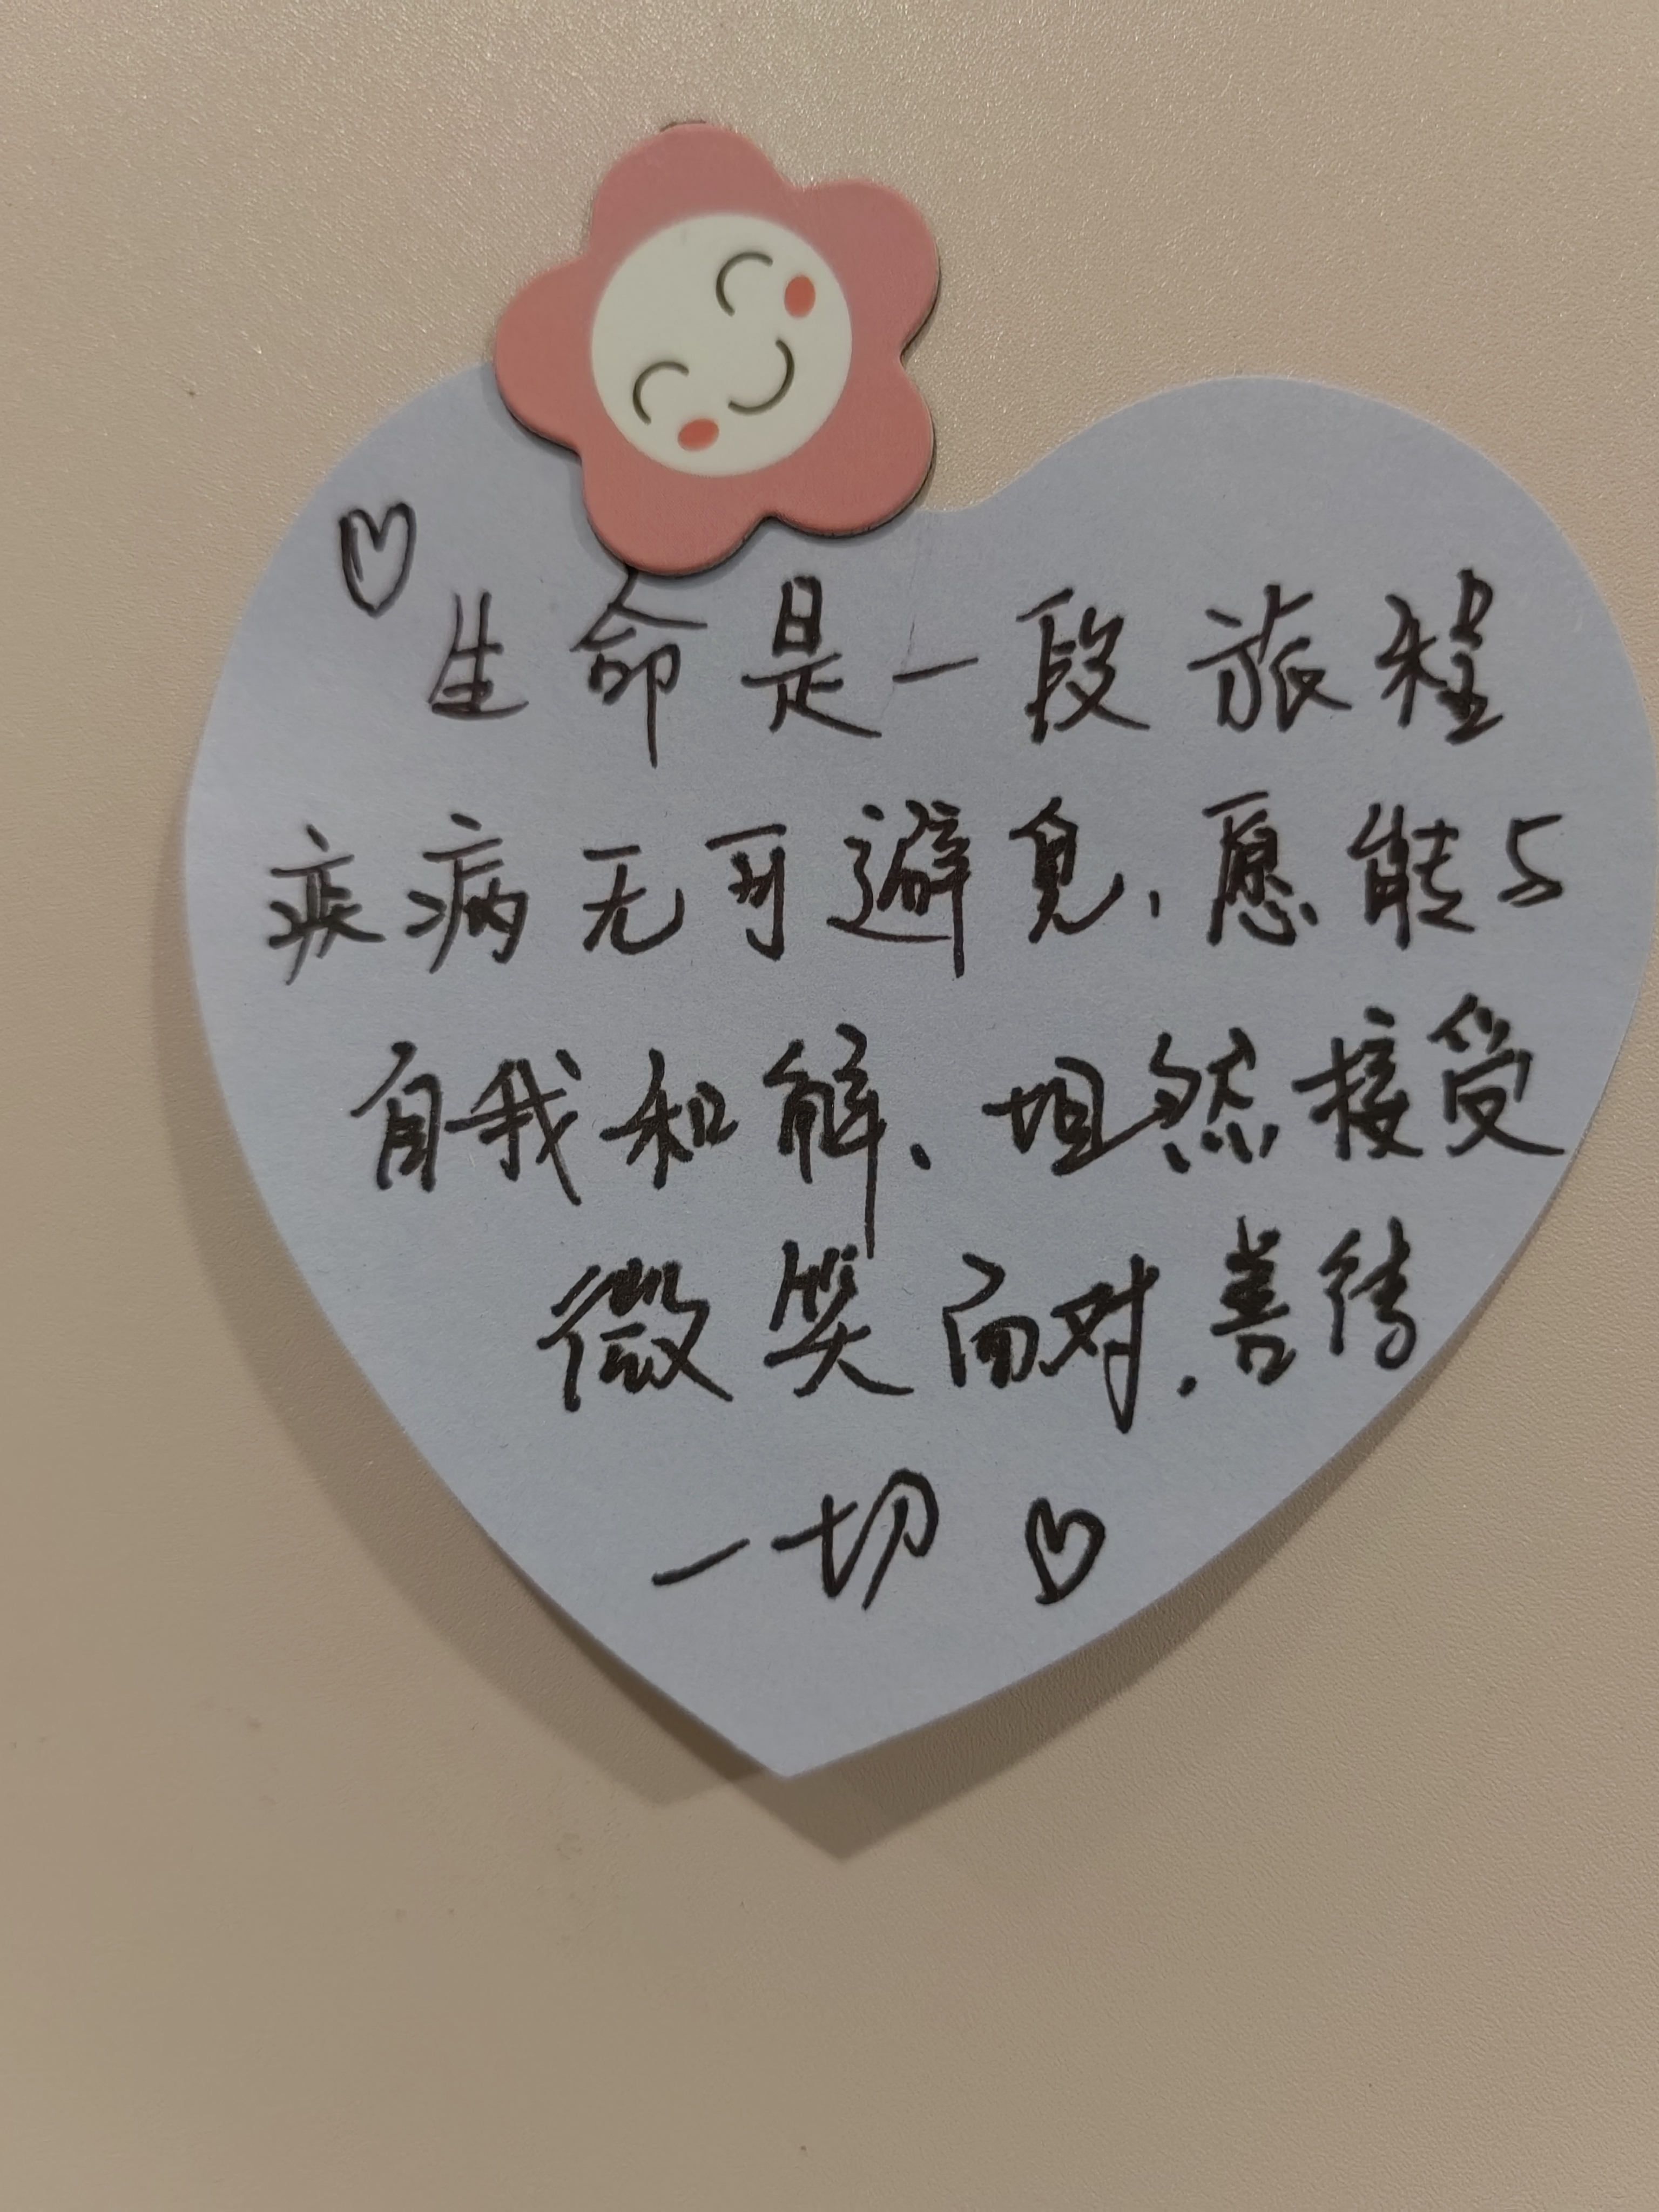 生命是一段旅程
疾病无可避免，愿能与
自我和解、坦然接受
微笑面对，善待
一切